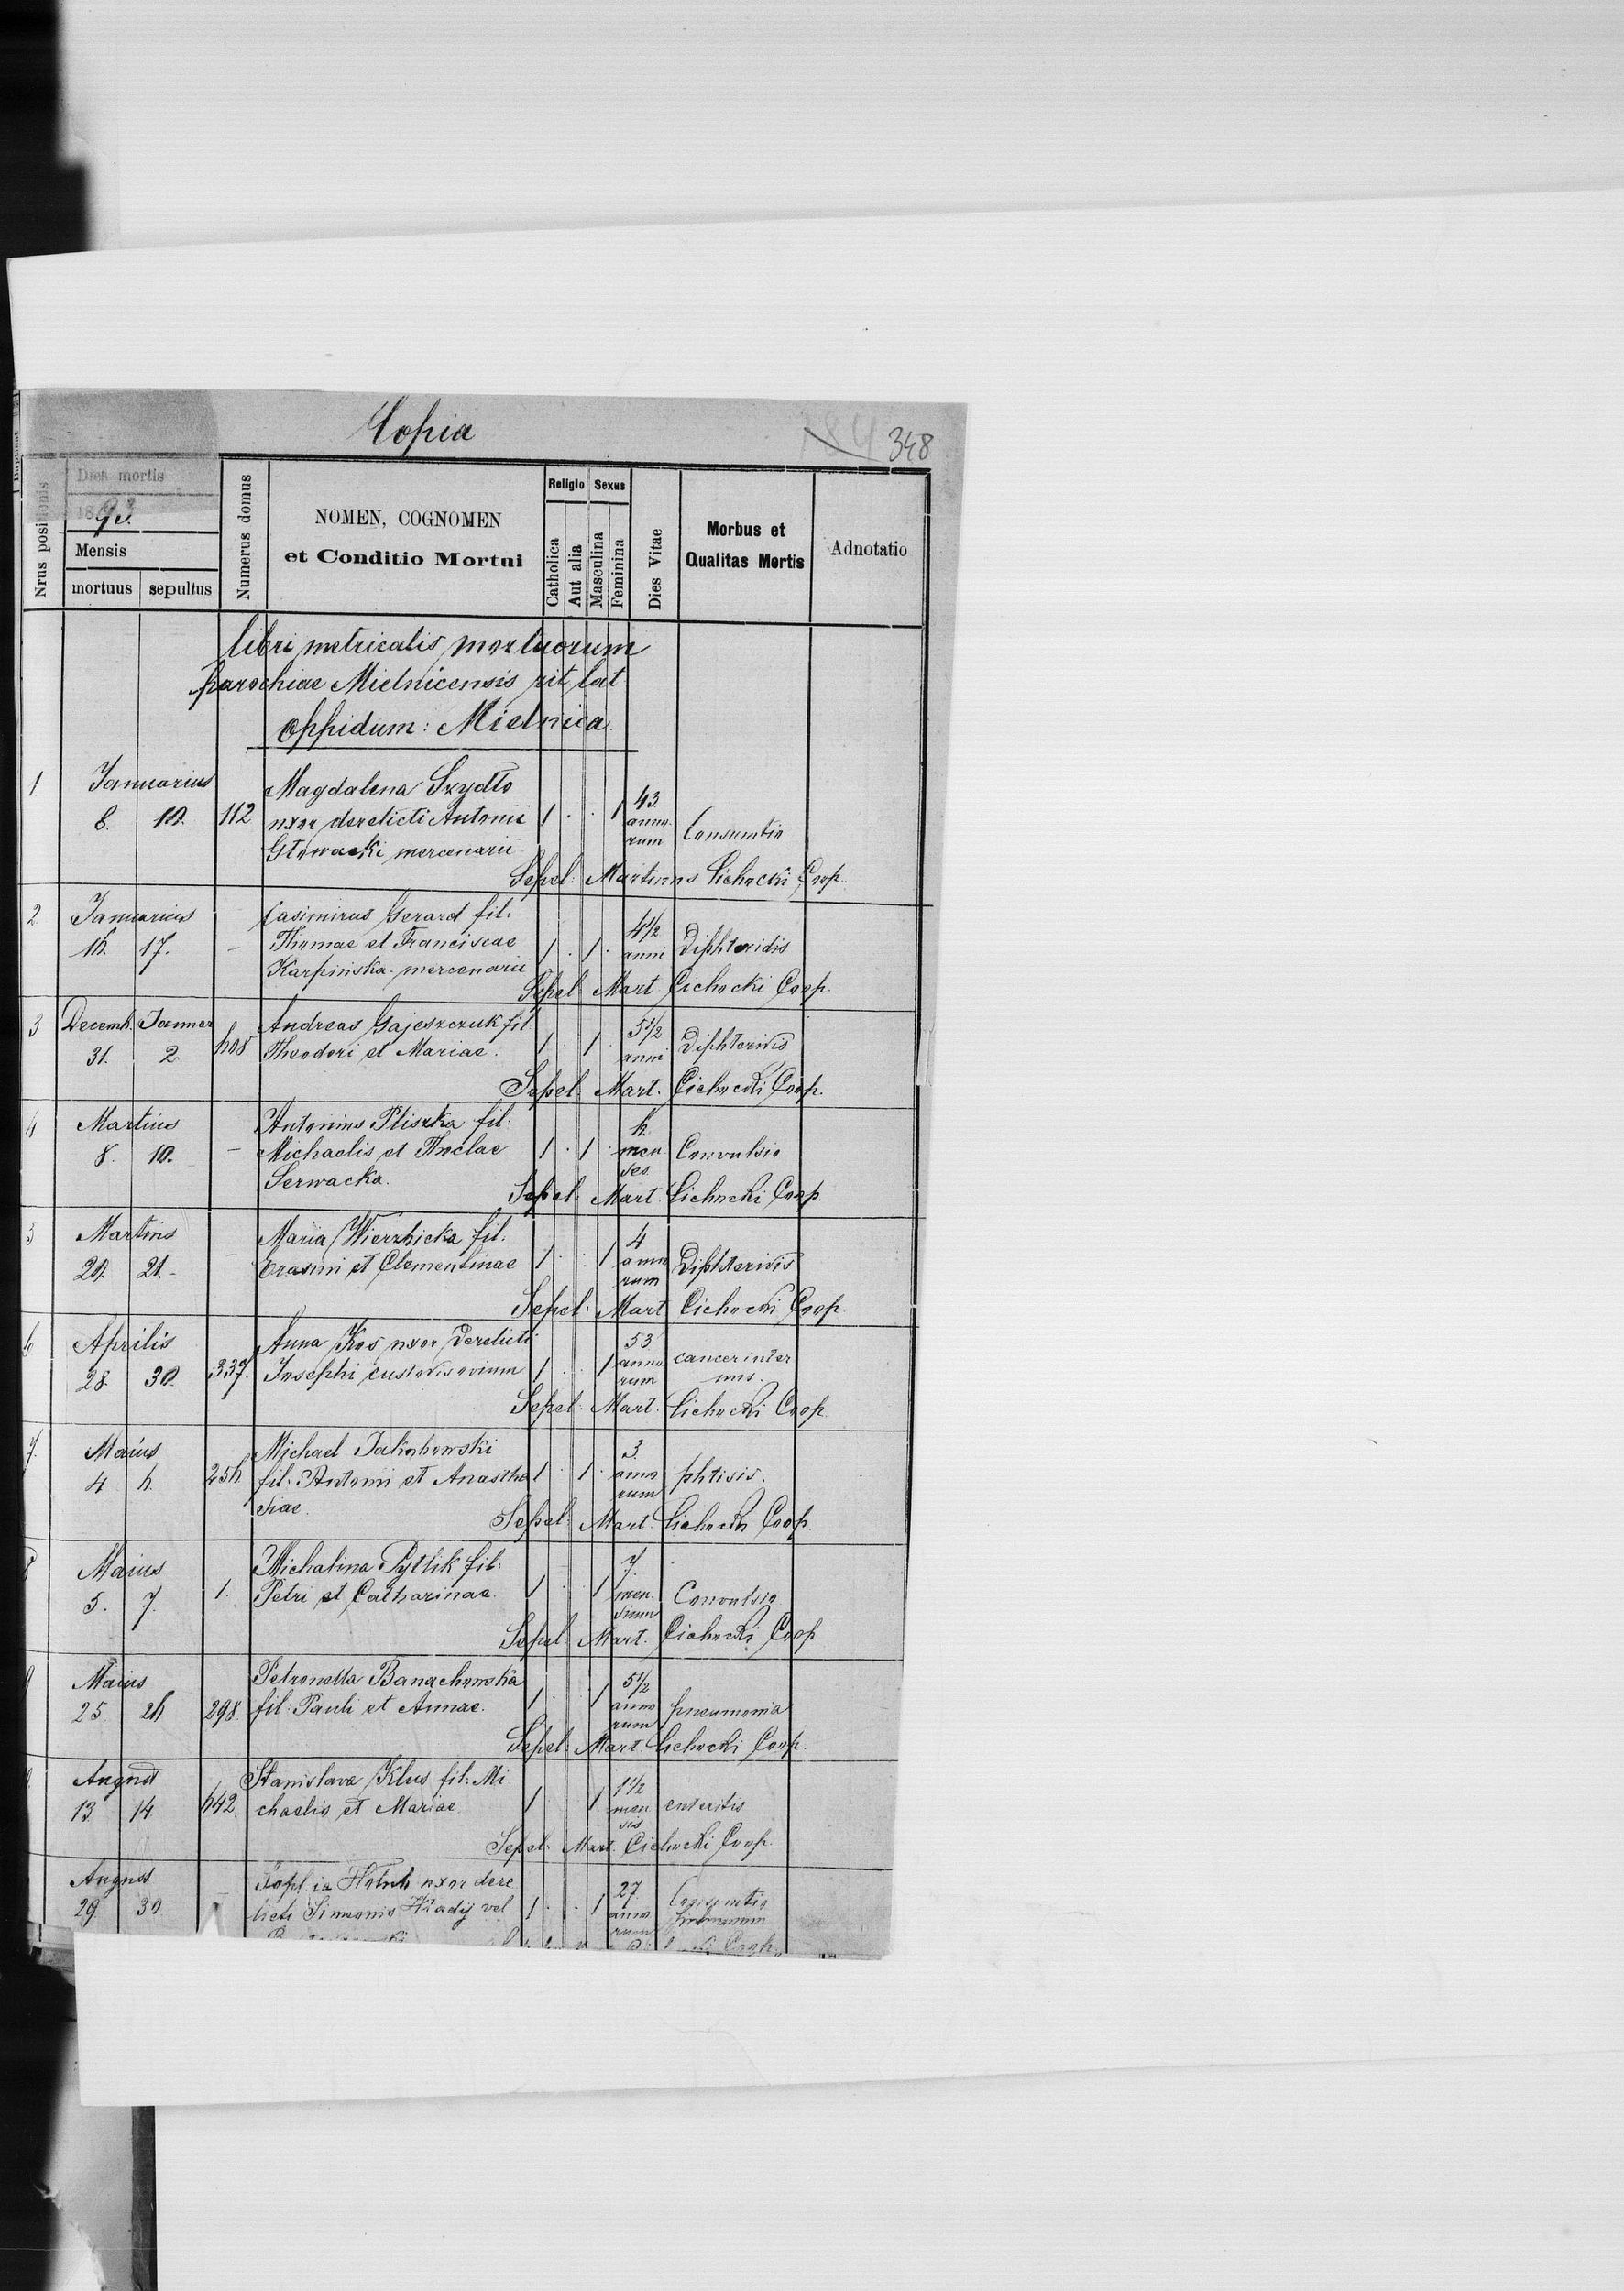 Copia
184 348
Nrus positionis
Dies mortis
1893.
Mensis
mortuus sepultus
Numerus domus
NOMEN, COGNOMEN
et Conditio Mortui
Religio Sexus
Catholica
Aut alia
Masculina
Feminina
Dies Vitae
Morbus et
Qualitas Mortis
Adnotatio
libri metricalis mortuorum
parochiae Mielnicensis rit. lat
oppidum: Mielnica
1 Januarius Magdalena Szydło 43
8. 10. 112 uxor derelicti Antonii 1 . . 1 anno
Głowacki mercenarii rum Consumtio
Sepel: Martinus Cichocki Coop.
2 Januarius Casimirus Gerard fil: 4 1/2
16. 17. - Thomae et Franciscae 1 . 1 . anni Diphteridis
Karpińska mercenarii
Sepel Mart Cichocki Coop.
3 Decemb. Januar Andreas Gajeszczuk fil 5 1/2
31. 2 608 Theodori et Mariae. 1 . 1 anni Diphteridis
Sepel. Mart. Cichocki Coop.
4 Martius Antonius Pliszka fil: 6.
8. 10. - Michaelis et Theclae 1 . 1 . men Convulsio
Serwacka. ses
Sepel. Mart. Cichocki Coop.
5 Martius Maria Wierzbicka fil. 4
20. 21.- Erasmi et Clementinae 1 . . 1 anno Diphteridis
rum
Sepel. Mart Cichocki Coop.
6 Aprilis Anna Kos uxor Derelicti 53
28. 30. 337. Josephi custodis ovium 1 . 1 anno cancer inter
rum nus.
Sepel. Mart. Cichocki Coop.
7. Maius Michael Jakubowski 3.
4 6. 256 fil. Antonii et Anastha 1 . 1 . anno phtisis.
siae. rum
Sepel: Mart. Cichocki Coop.
8 Maius Michalina Pytlik fil: 7.
5. 7. 1. Petri et Catharinae. 1 . . 1 men Convulsio
sium
Sepel. Mart. Cichocki Coop
9 Maius Petronella Banachowska 5 1/2
25 26 298. fil: Pauli et Annae. 1 . 1 anno pneumonia
rum
Sepel: Mart. Cichocki Coop.
August Stanislava Klus fil: Mi 1 1/2
13. 14 642. chaelis et Mariae. 1 1 men enteritis
sis
Sepel. Mart. Cichocki Coop.
August Sophia uxor dere 27
29 30 - licti Simeonis vel 1 . . 1 anno Consumtio
rum
Coop.